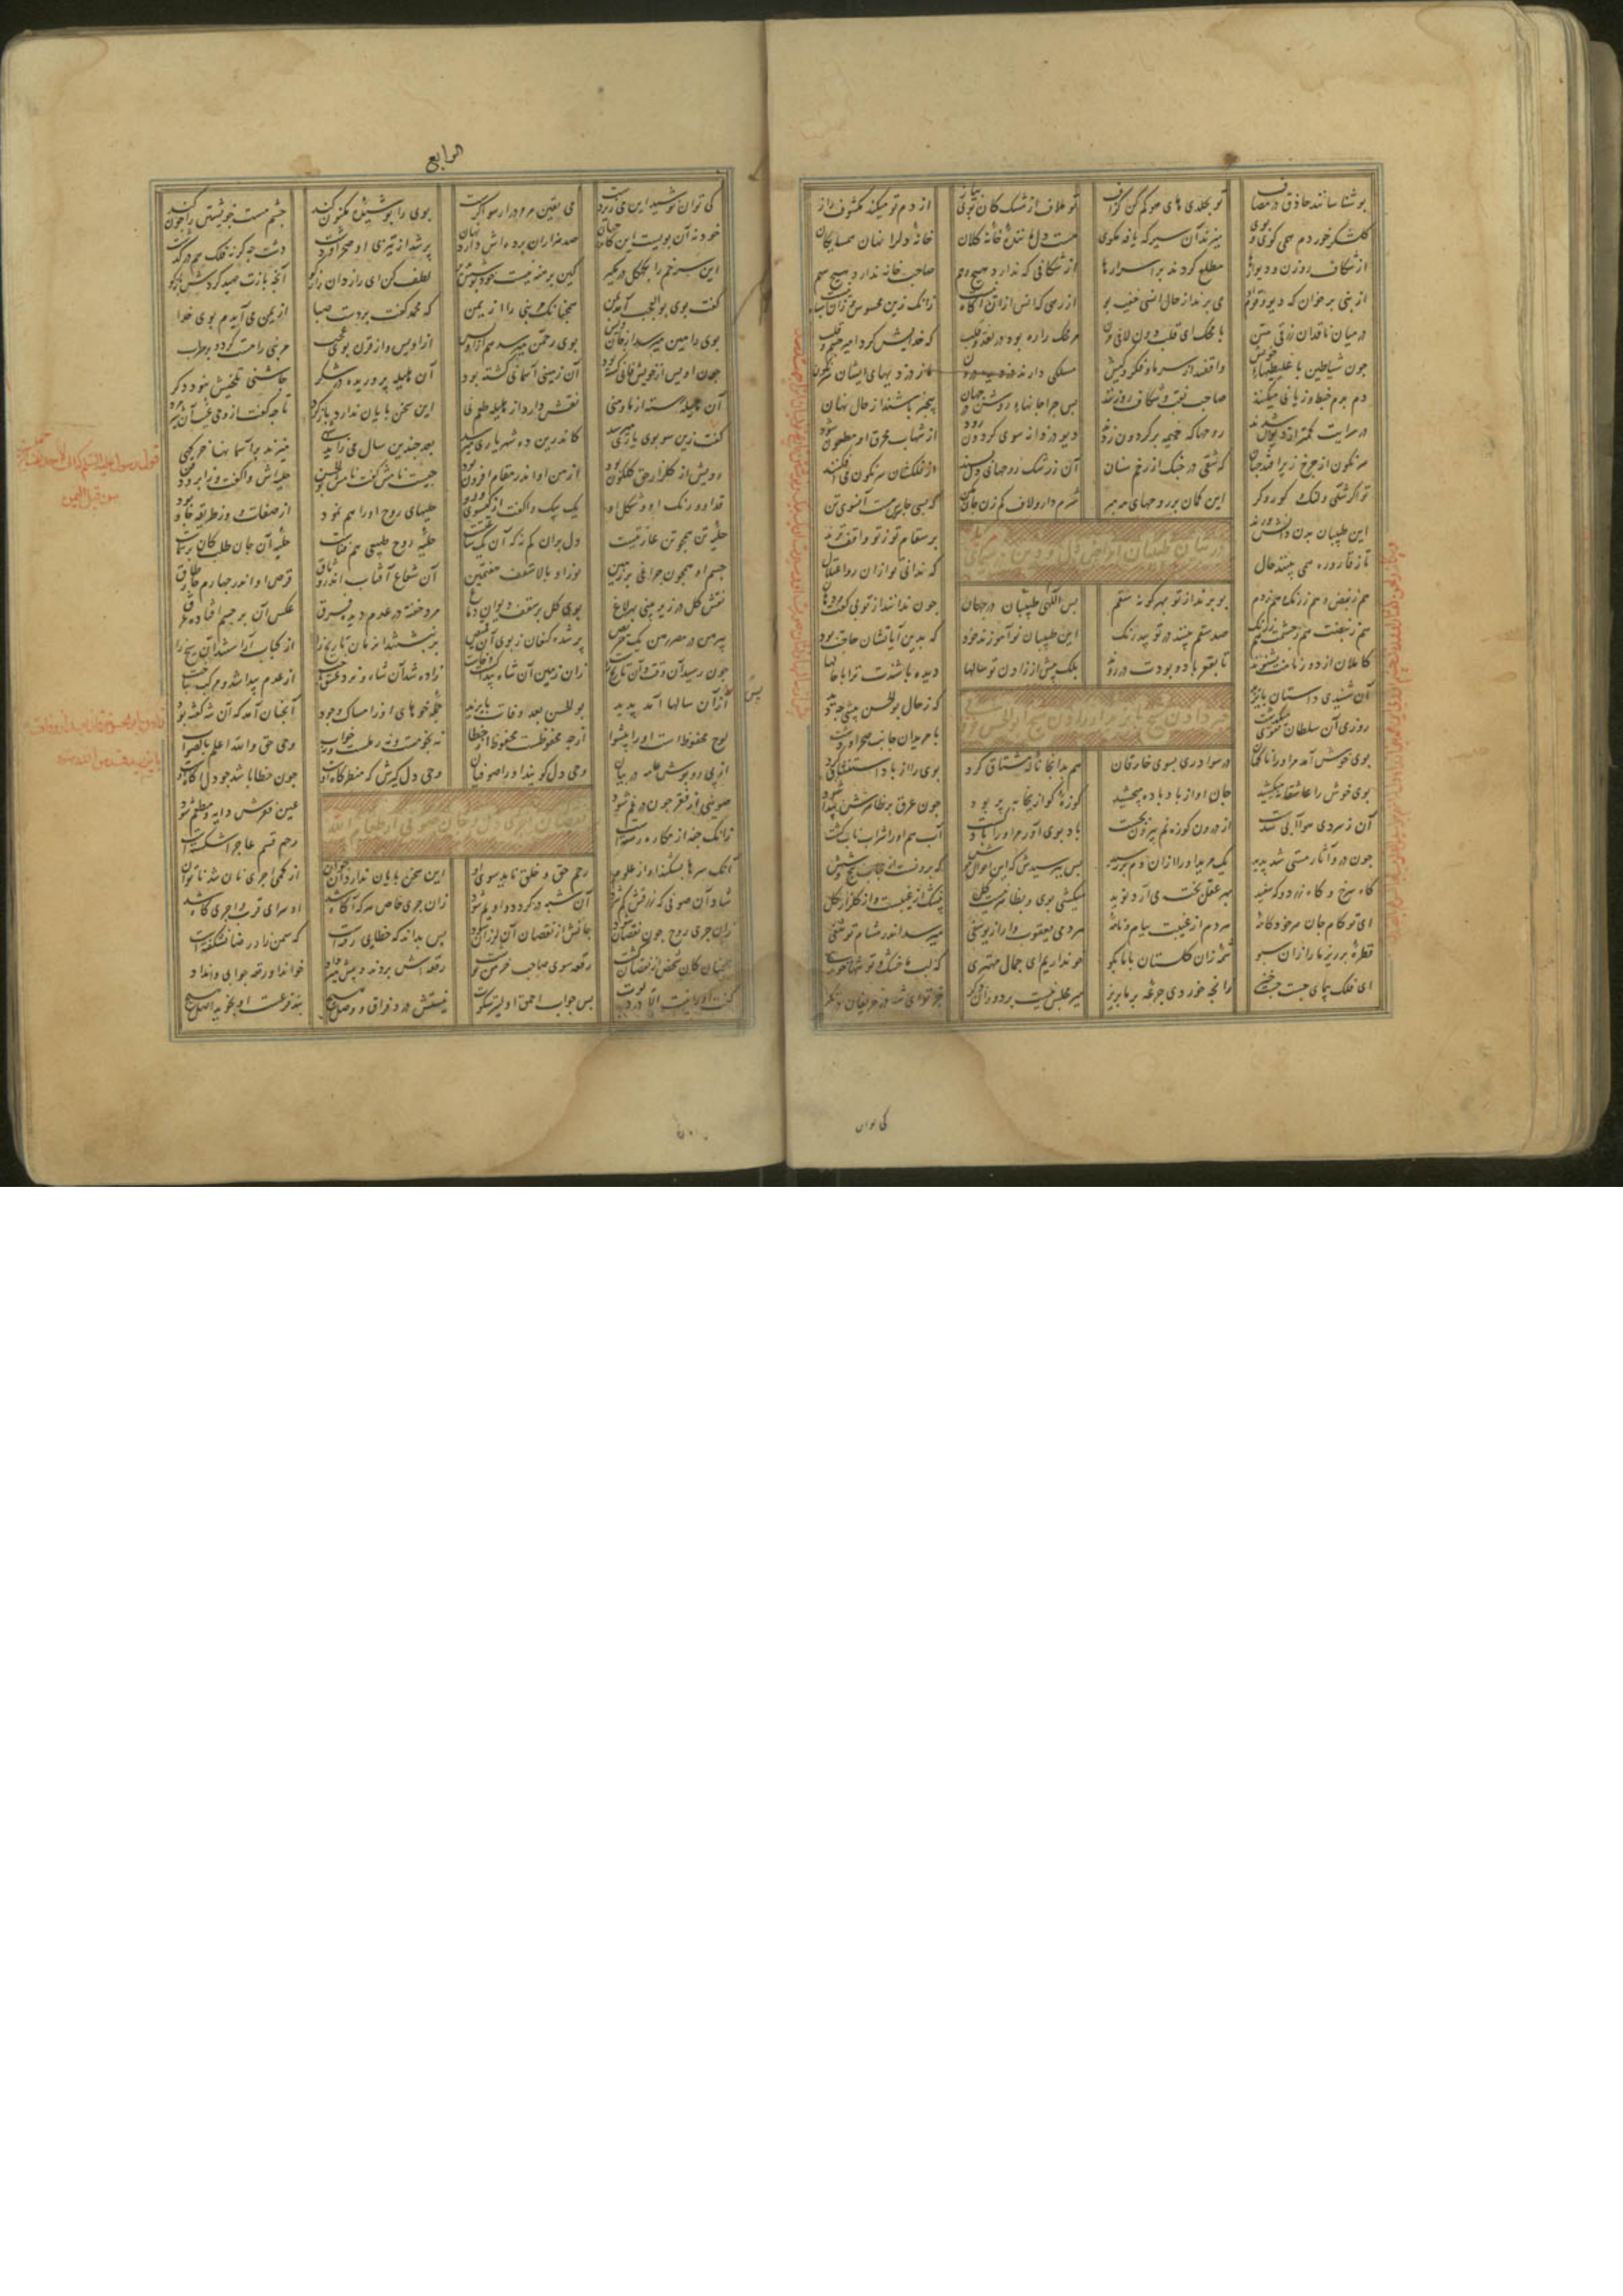 بو شناسانند حاذق در مصاف تو بجلدی های هو کم کن گزاف
تو ملاف از مشک کان بوی پیاز از دم تو میکند مکشوف راز
گلشکر خوردم همی گویی و بوی میزند آن سیر که یافه مگوی
هست دل ماننده خانه کلان خانه دل را نهان همسایگان
از شکاف روزن و دیوارها مطلع گردند بر اسرار ما
از شکافی که ندارد هیچ وهم صاحب خانه ندارد هیچ سهم
از نبی بر خوان که دیو و قوم او می برند از حال انسی خفیه بو
از رهی که انس ازان آگاه نیست زانک زین محسوس و زین اشباه نیست
در میان ناقدان زرقی متن با محک ای قلب دون لافی مزن
مر محک را ره بود در نقد و قلب که خدایش کرد امیر جسم و قلب
چون شیاطین با غلیظیهای خویش واقفند از سر ما و فکر و کیش
مسلکی دارند دزدیده درون ما ز دزدیهای ایشان سرنگون
دم بدم خبط و زیانی میکنند صاحب نقب و شکاف روزنند
پس چرا جانهای روشن در جهان بیخبر باشند از حال نهان
در سرایت کمتر از دیوان شدند روحها که خیمه بر گردون زدند
دیو دزدانه سوی گردون رود از شهاب محرق او مطعون شود
سرنگون از چرخ زیر افتد چنان که شقی در جنگ از زخم سنان
آن ز رشک روحهای دل پسند از فلکشان سرنگون می افکنند
تو اگر شلی و لنگ و کور و کر این گمان بر روحهای مه مبر
شرم دار و لاف کم زن جان مکن که بسی جاسوس هست آنسوی تن
در بیان طبیبان امراض دل و دین
این طبیبان بدن دانش ورند بر سقام تو ز تو واقف ترند
تا ز قاروره همی بینند حال که ندانی تو ازان رو اعتلال
هم ز نبض و هم ز رنگ و هم ز دم بو برند از تو بهر گونه سقم
پس الهی طبیبان در جهان چون ندانند از تو بی گفت دهان
هم ز نبضت هم ز چشمت هم ز رنگ صد سقم بینند در تو بیدرنگ
این طبیبان نوآموزند خود که بدین آیاتشان حاجت بود
کاملان از دور نامت بشنوند تا بقعر باد و بودت در روند
بلک پیش از زادن تو سالها دیده باشندت ترا با حالها
مژده دادن شیخ بایزید از زادن شیخ ابوالحسن خرقانی
آن شنیدی داستان بایزید که ز حال بوالحسن پیشین چه دید
روزی آن سلطان تقوی میگذشت با مریدان جانب صحرا و دشت
بوی خوش آمد مر او را ناگهان در سواد ری بسوی خارقان
هم بدانجا ناله مشتاق کرد بوی را از باد استنشاق کرد
بوی خوش را عاشقانه میکشید جان او از باد باده میچشید
کوزه کو از یخابه پر بود چون عرق بر ظاهرش پیدا شود
آن ز سردی هوا آبی شدست از درون کوزه نم بیرون نجست
باد بوی آور مر او را آب گشت آب هم او را شراب ناب گشت
چون درو آثار مستی شد پدید یک مرید او را ازان دم بر رسید
پس بپرسیدش که این احوال خوش که برونست از حجاب پنج و شش
گاه سرخ و گاه زرد و گه سفید میشود رویت چه حالست و نوید
میکشی بوی و بظاهر نیست گل بیشک از غیبست و از گلزار کل
ای تو کام جان هر خودکامه هر دم از غیبت پیام و نامه
هر دمی یعقوب وار از یوسفی میرسد اندر مشام تو شفی
قطره بر ریز بر ما زان سبو شمه زان گلستان با ما بگو
خو نداریم ای جمال مهتری که لب ما خشک و تو تنها خوری
ای فلک پیمای چست چست خیز زانچه خوردی جرعه بر ما بریز
میر مجلس نیست در دوران دگر جز تو ای شه در حریفان در نگر
کی توان
الرابع
کی توان نوشید این می زیردست می یقین مر مرد را رسواگرست
بوی را پوشیده و مکنون کند چشم مست خویشتن را چون کند
خود نه آن بویست این کاندر جهان صد هزاران پرده اش دارد نهان
پر شد از تیزی او صحرا و دشت دشت چه کز نه فلک هم در گذشت
این سر خم را بکهگل در مگیر کین برهنه نیست خود پوشش پذیر
لطف کن ای رازدان رازگو آنچه بازت صید کردش بازگو
گفت بوی بوالعجب آمد بمن همچنانک مر نبی را از یمن
که محمد گفت بر دست صبا از یمن می آیدم بوی خدا
بوی رامین میرسد از جان ویس بوی رحمن میرسد هم از اویس
از اویس و از قرن بوی عجب مر نبی را مست کرد و پر طرب
چون اویس از خویش فانی گشته بود آن زمینی آسمانی گشته بود
آن هلیله پروریده در شکر چاشنی تلخیش نبود دگر
آن هلیله رسته از ما و منی نقش دارد از هلیله طعم نی
این سخن پایان ندارد باز گرد تا چه گفت از وحی غیب آن شیر مرد
گفت زین سو بوی یاری میرسد کاندرین ده شهریاری میرسد
بعد چندین سال می زاید شهی میزند بر آسمانها خرگهی
رویش از گلزار حق گلگون بود از من او اندر مقام افزون بود
چیست نامش گفت نامش بوالحسن حلیه اش وا گفت ز ابرو و ذقن
قد او و رنگ او و شکل او یک بیک وا گفت از گیسو و رو
حلیهای روح او را هم نمود از صفات و از طریقه و جا و بود
حلیه تن همچو تن عاریتیست دل بران کم نه که آن یک ساعتیست
حلیه روح طبیعی هم فناست حلیه آن جان طلب کان بر سماست
جسم او همچون چراغی بر زمین نور او بالای سقف هفتمین
آن شعاع آفتاب اندر وثاق قرص او اندر چهارم چارطاق
نقش گل در زیر بینی بهر لاغ بوی گل بر سقف و ایوان دماغ
مرد خفته در عدن دیده فرق عکس آن بر جسم افتاده عرق
پیرهن در مصر رهن یک حریص پر شده کنعان ز بوی آن قمیص
بر نبشتند آن زمان تاریخ را از کباب آراستند آن سیخ را
چون رسید آن وقت و آن تاریخ راست زان زمین آن شاه پیدا گشت و خاست
زاده شد آن شاه و نرد عشق باخت از عدم پیدا شد و مرکب بتاخت
از پس آن سالها آمد پدید بوالحسن بعد وفات بایزید
جمله خوهای او ز امساک و جود آنچنان آمد که آن شه گفته بود
لوح محفوظ است او را پیشوا از چه محفوظست محفوظ از خطا
نه نجومست و نه رملست و نه خواب وحی حق والله اعلم بالصواب
از پی روپوش عامه در بیان وحی دل گویند او را صوفیان
وحی دل گیرش که منظرگاه اوست چون خطا باشد چو دل آگاه اوست
نقصان اجری دل و جان صوفی از طعام الله
صوفیی از فقر چون در غم شود عین فقرش دایه و مطعم شود
زانک جنت از مکاره رسته است رحم قسم عاجز اشکسته است
آنک سرها بشکند او از علو رحم حق و خلق ناید سوی او
این سخن پایان ندارد وان جوان از کمی اجری نان شد ناتوان
شاد آن صوفی که رزقش کم شود آن شبه در گردد و او یم شود
زان جری خاص هر که آگاه شد او سزای قرب و اجری گاه شد
زان جری روح چون نقصان شود جانش از نقصان آن لرزان شود
پس بداند که خطایی رفته است که سمن زار رضا آشفته است
همچنان کان شخص از نقصان کشت رقعه سوی صاحب خرمن نبشت
رقعه اش بردند پیش میر داد خواند او رقعه جوابی وا نداد
گفت او را نیست الا درد لوت پس جواب احمق اولیتر سکوت
نیستش درد فراق و وصل هیچ بند فرعست او نجوید اصل هیچ